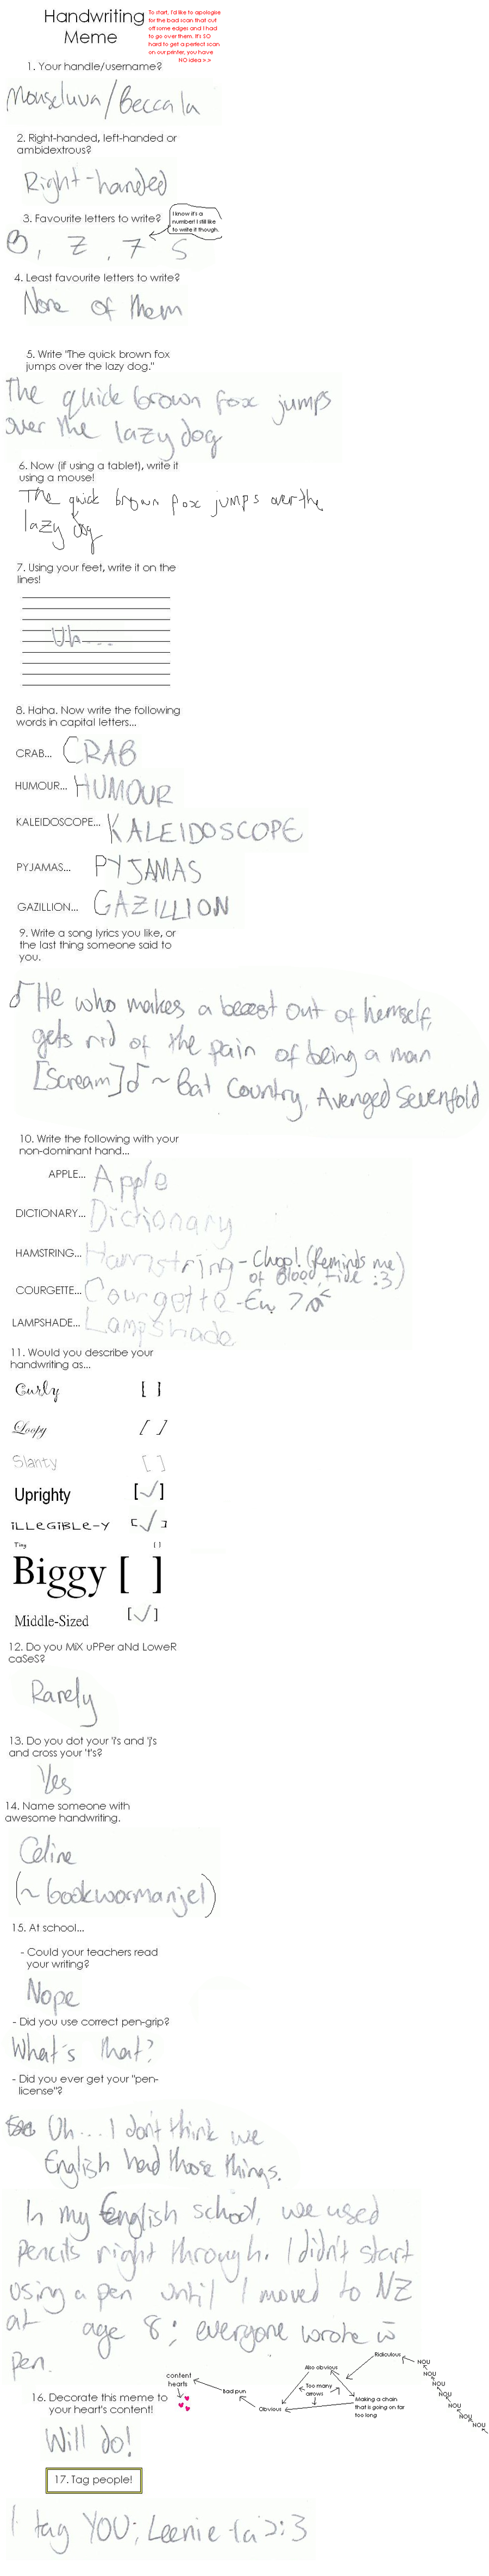 Handwriting
Meme
To start, I'd like to apologise
for the bad scan that cut
off some edges and I had
to go over them. It's SO
hard to get a perfect scan
on our printer, you have
NO idea >.>
1. Your handle/username?
Mouseluva/Beccala
2. Right-handed, left-handed or
ambidextrous?
Right-handed
3. Favourite letters to write?
I know it's a
number! I still like
to write it though.
B, Z, 7 S
4. Least favourite letters to write?
None of them
5. Write "The quick brown fox
jumps over the lazy dog."
The quick brown fox jumps
over the lazy dog
6. Now (if using a tablet), write it
using a mouse!
The quick brown fox jumps over the
lazy dog
7. Using your feet, write it on the
lines!
Uh....
8. Haha. Now write the following
words in capital letters...
CRAB... CRAB
HUMOUR... HUMOUR
KALEIDOSCOPE... KALEIDOSCOPE
PYJAMAS... PYJAMAS
GAZILLION... GAZILLION
9. Write a song lyrics you like, or
the last thing someone said to
you.
♪ He who makes a beast out of himself,
gets rid of the pain of being a man
[Scream] ♪ ~ Bat Country, Avenged Sevenfold
10. Write the following with your
non-dominant hand...
APPLE... Apple
DICTIONARY... Dictionary
HAMSTRING... Hamstring - Chop! (Reminds me
of Blood tide :3)
COURGETTE... Courgette - Ew
LAMPSHADE... Lampshade
11. Would you describe your
handwriting as...
Curly [ ]
Loopy [ ]
Slanty [ ]
Uprighty [✓]
iLLeGiBLe-Y [✓]
Tiny [ ]
Biggy [ ]
Middle-Sized [✓]
12. Do you MiX uPPer aNd LoweR
caSeS?
Rarely
13. Do you dot your 'i's and 'j's
and cross your 't's?
Yes
14. Name someone with
awesome handwriting.
Celine
(~bookwormanjel)
15. At school...
- Could your teachers read
your writing?
Nope
- Did you use correct pen-grip?
What's that?
- Did you ever get your "pen-
license"?
Uh... I don't think we
English had those things.
In my English school, we used
pencils right through. I didn't start
using a pen until I moved to NZ
at age 8; everyone wrote in
pen.
16. Decorate this meme to
your heart's content!
content
hearts
Bad pun
Obvious
Also obvious
Too many
arrows
Making a chain
that is going on far
too long
Ridiculous
NOU
NOU
NOU
NOU
NOU
NOU
NOU
Will do!
17. Tag people!
I tag YOU; Leenie-la >:3